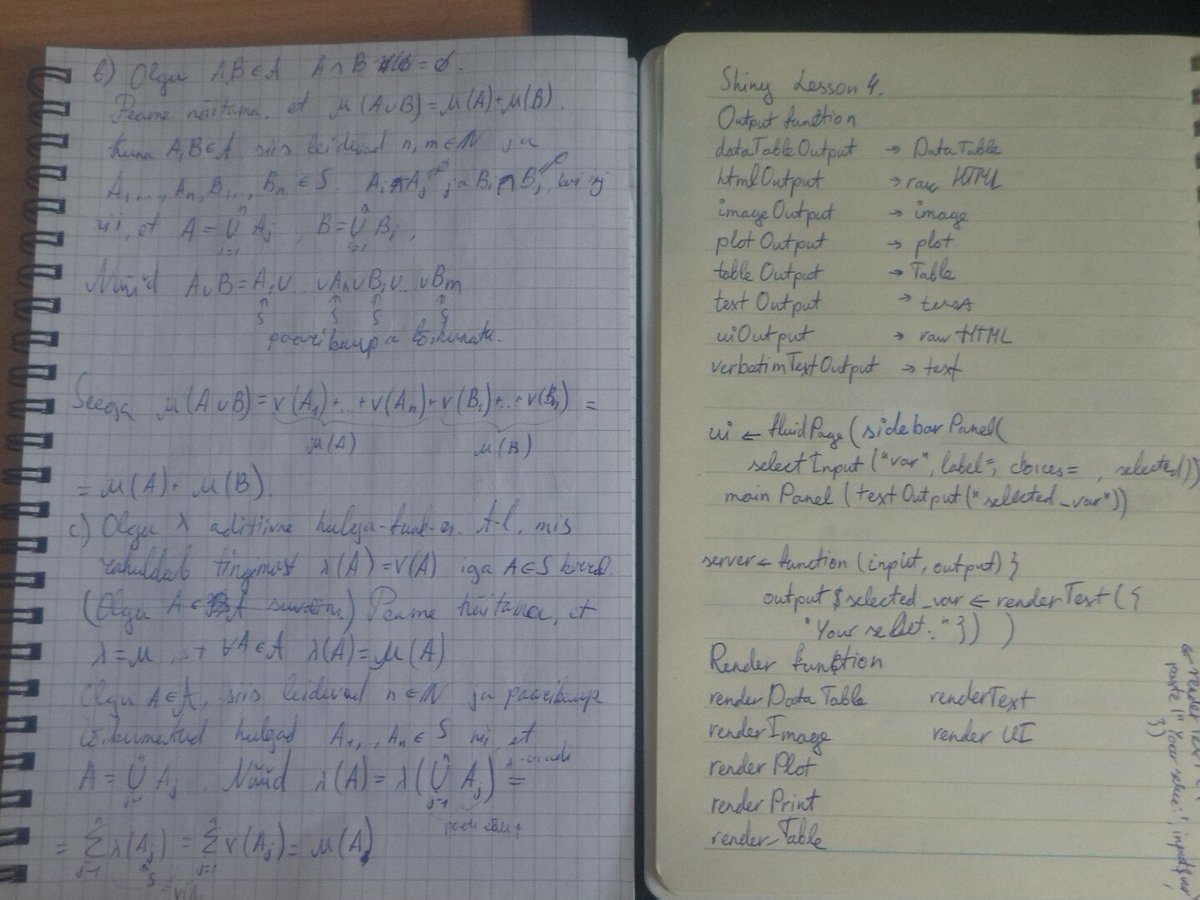 b) Olgu A,B ∈ A A ∩ B = ∅.
Peame näitama, et μ(A∪B) = μ(A) + μ(B).
Kuna A,B ∈ A, siis leiduvad n, m ∈ N ja
A₁, ..., Aₙ, B..., Bₙ ∈ S Aᵢ ∩ Aⱼ ja Bᵢ ∩ Bⱼ
nii, et A = ⋃ Aⱼ, B = ⋃ Bⱼ,
Nüüd A∪B = A₁∪ ∪Aₙ∪B₁∪... ∪Bm
S S S S
paarikaupa lõikumatu.
Seega μ(A∪B) = ν(A₁)+...+ν(Aₙ)+ν(B₁)+...+ν(Bₙ) =
μ(A) μ(B)
= μ(A) + μ(B).
c) Olgu λ aditiivne hulga-funk-on A-l, mis
rahuldab tingimust λ(A) = ν(A) iga A∈S korral.
(Olgu A ∈ A suvaline.) Peame näitama, et
λ = μ, s.t ∀A∈A λ(A) = μ(A)
Olgu A∈A, siis leiduvad n∈N ja paarikaupa
lõikumatud hulgad A₁,.., Aₙ ∈ S nii, et
A = ⋃ Aⱼ. Nüüd λ(A) = λ(⋃ Aⱼ) =
= Σ λ(Aⱼ) = Σ ν(Aⱼ) = μ(A)
Shiny Lesson 4.
Output function
dataTableOutput → DataTable
htmlOutput → raw HTML
imageOutput → image
plotOutput → plot
tableOutput → Table
textOutput →
uiOutput → raw HTML
verbatimTextOutput → text
ui ← fluidPage(sidebarPanel(
selectInput("var", label=, choices= , selected))
mainPanel(textOutput("selected_var"))
server ← function(input, output) }
output$selected_var ← renderText({
"Your select:" }) )
Render function
renderDataTable renderText
renderImage renderUI
renderPlot
renderPrint
render_Table
paste("Your select:", input$var)
})